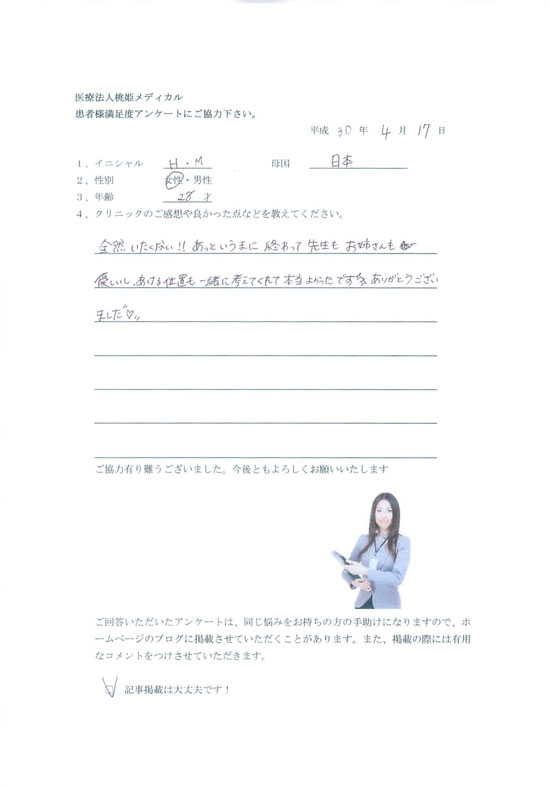 医療法人桃姫メディカル
患者様満足度アンケートにご協力下さい。
平成 30 年 4 月 17 日
1、イニシャル H・M 母国 日本
2、性別 女性・男性
3、年齢 28 才
4、クリニックのご感想や良かった点などを教えてください。
全然いたくない!! あっというまに 終わって 先生も お姉さんも
優しいし、あける位置も 一緒に考えてくれて 本当よかったです ありがとうござい
ました♡
ご協力有り難うございました。今後ともよろしくお願いいたします
ご回答いただいたアンケートは、同じ悩みをお持ちの方の手助けになりますので、ホ
ームページのブログに掲載させていただくことがあります。また、掲載の際には有用
なコメントをつけさせていただきます。
記事掲載は大丈夫です！